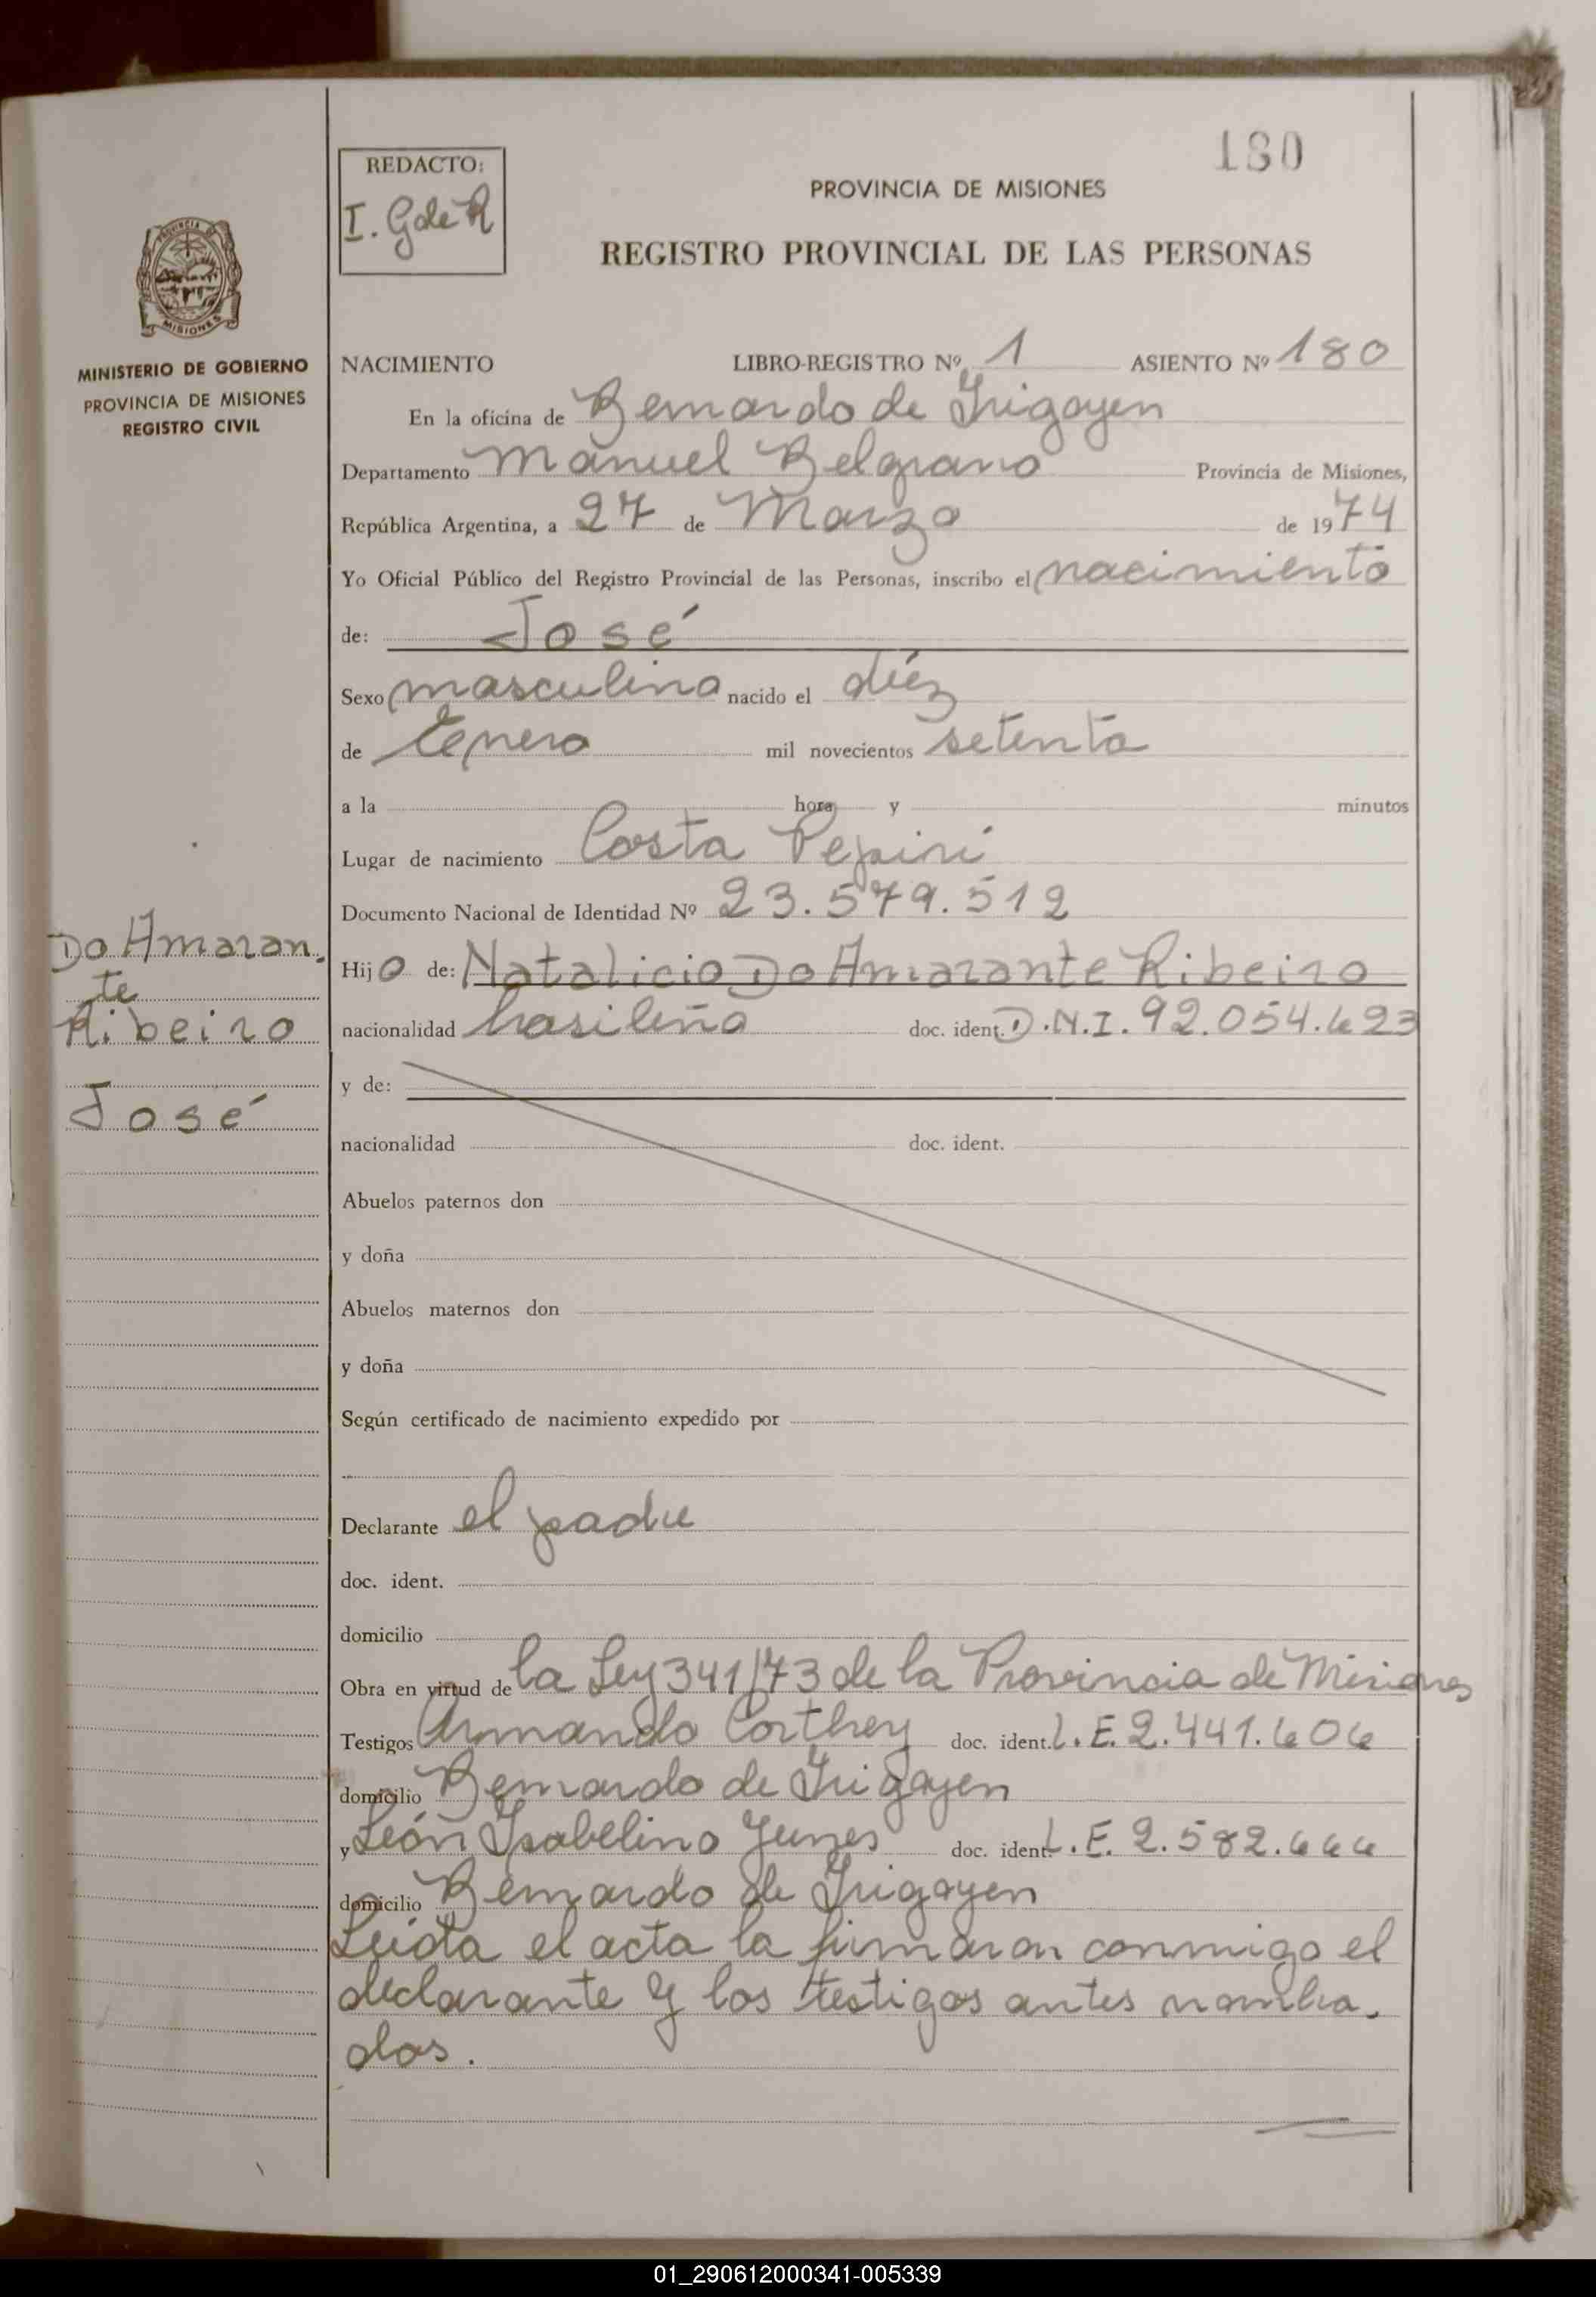 180
REDACTO:
I. G de R
PROVINCIA DE MISIONES
REGISTRO PROVINCIAL DE LAS PERSONAS
PROVINCIA DE
MISIONES
MINISTERIO DE GOBIERNO
PROVINCIA DE MISIONES
REGISTRO CIVIL
NACIMIENTO LIBRO-REGISTRO Nº 1 ASIENTO Nº 180
En la oficina de Bernardo de Irigoyen
Departamento Manuel Belgrano Provincia de Misiones,
República Argentina, a 27 de Marzo de 1974
Yo Oficial Público del Registro Provincial de las Personas, inscribo el nacimiento
de: José
Sexo masculino nacido el diéz
de Enero mil novecientos setenta
a la hora y minutos
Lugar de nacimiento Costa Pepirí
Documento Nacional de Identidad Nº 23.579.512
Do Amaran.
te
Ribeiro
José
Hijo de: Natalicio Do Amarante Ribeiro
nacionalidad brasileña doc. ident. D.N.I. 92.054.623
y de:
nacionalidad doc. ident.
Abuelos paternos don
y doña
Abuelos maternos don
y doña
Según certificado de nacimiento expedido por
Declarante el padre
doc. ident.
domicilio
Obra en virtud de la Ley 341/73 de la Provincia de Misiones
Testigos Armando Corthey doc. ident. L.E. 2.441.606
domicilio Bernardo de Irigoyen
y León Isabelino Yunes doc. ident. L.E. 2.582.666
domicilio Bernardo de Irigoyen
Leída el acta la firmaron conmigo el
declarante y los testigos antes nombra.
dos.
01_290612000341-005339